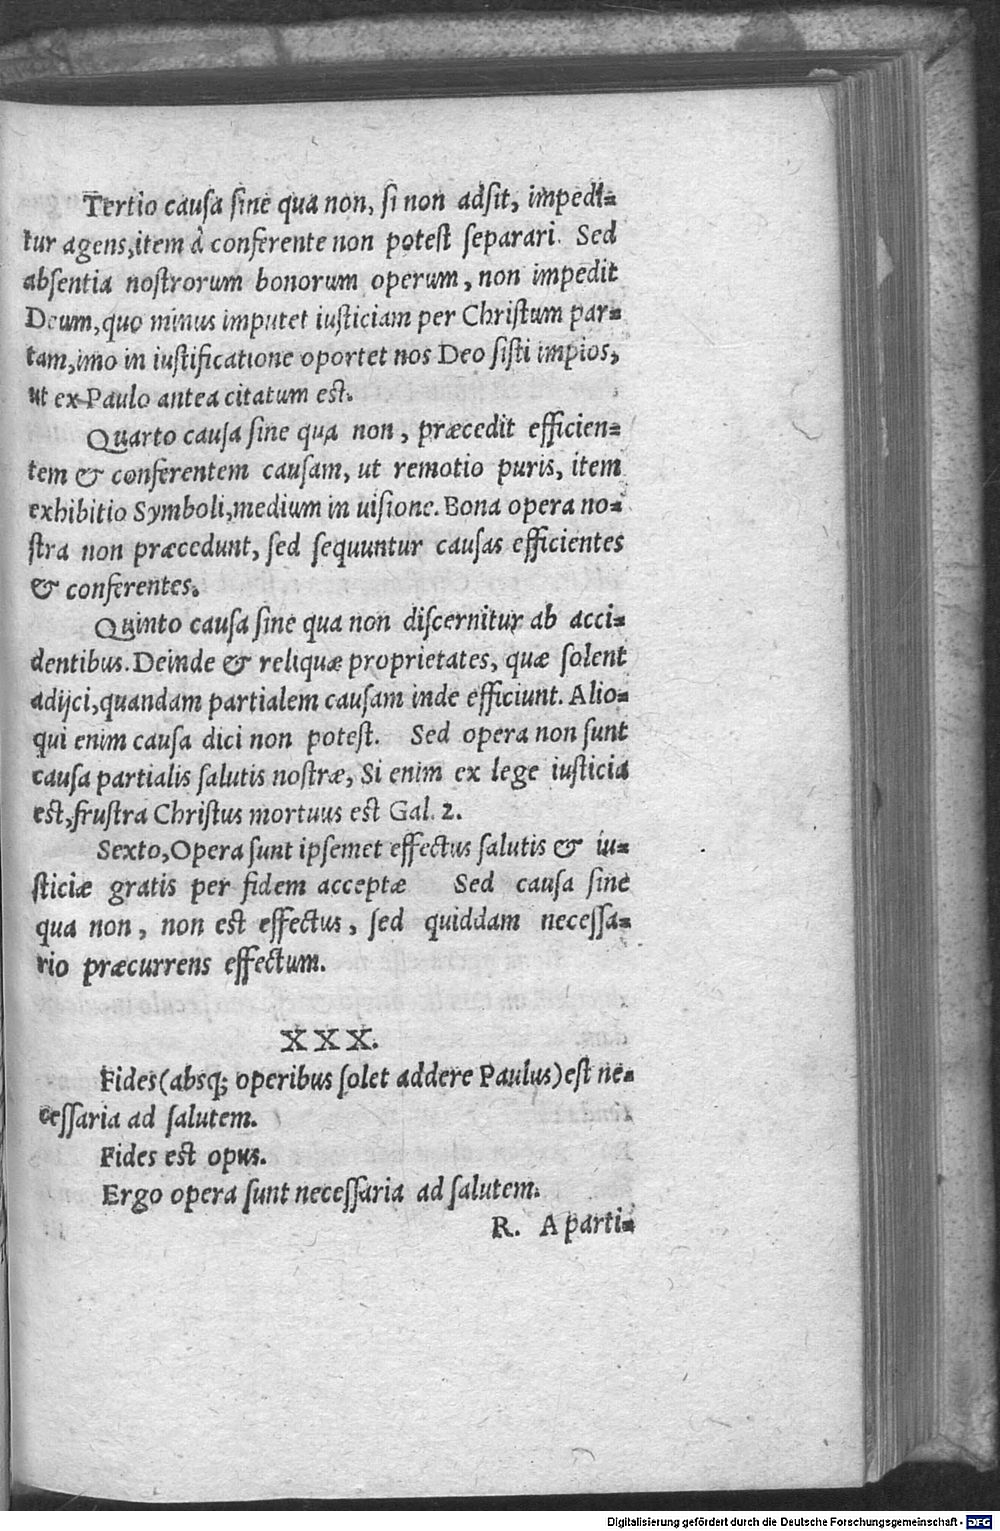 Tertio causa sine qua non, si non adsit, impedi-
tur agens, item à conferente non potest separari. Sed
absentia nostrorum bonorum operum, non impedit
Deum, quo minus imputet iusticiam per Christum par-
tam, imo in iustificatione oportet nos Deo sisti impios,
ut ex Paulo antea citatum est.
Quarto causa sine qua non, præcedit efficien-
tem & conferentem causam, ut remotio puris, item
exhibitio Symboli, medium in uisione. Bona opera no-
stra non præcedunt, sed sequuntur causas efficientes
& conferentes.
Quinto causa sine qua non discernitur ab acci-
dentibus. Deinde & reliquæ proprietates, quæ solent
adijci, quandam partialem causam inde efficiunt. Alio-
qui enim causa dici non potest. Sed opera non sunt
causa partialis salutis nostræ, Si enim ex lege iusticia
est, frustra Christus mortuus est Gal. 2.
Sexto, Opera sunt ipsemet effectus salutis & iu-
sticiæ gratis per fidem acceptæ Sed causa sine
qua non, non est effectus, sed quiddam necessa-
rio præcurrens effectum.
XXX.
Fides (absq; operibus solet addere Paulus) est ne-
cessaria ad salutem.
Fides est opus.
Ergo opera sunt necessaria ad salutem.
R. A parti-
Digitalisierung gefördert durch die Deutsche Forschungsgemeinschaft - DFG